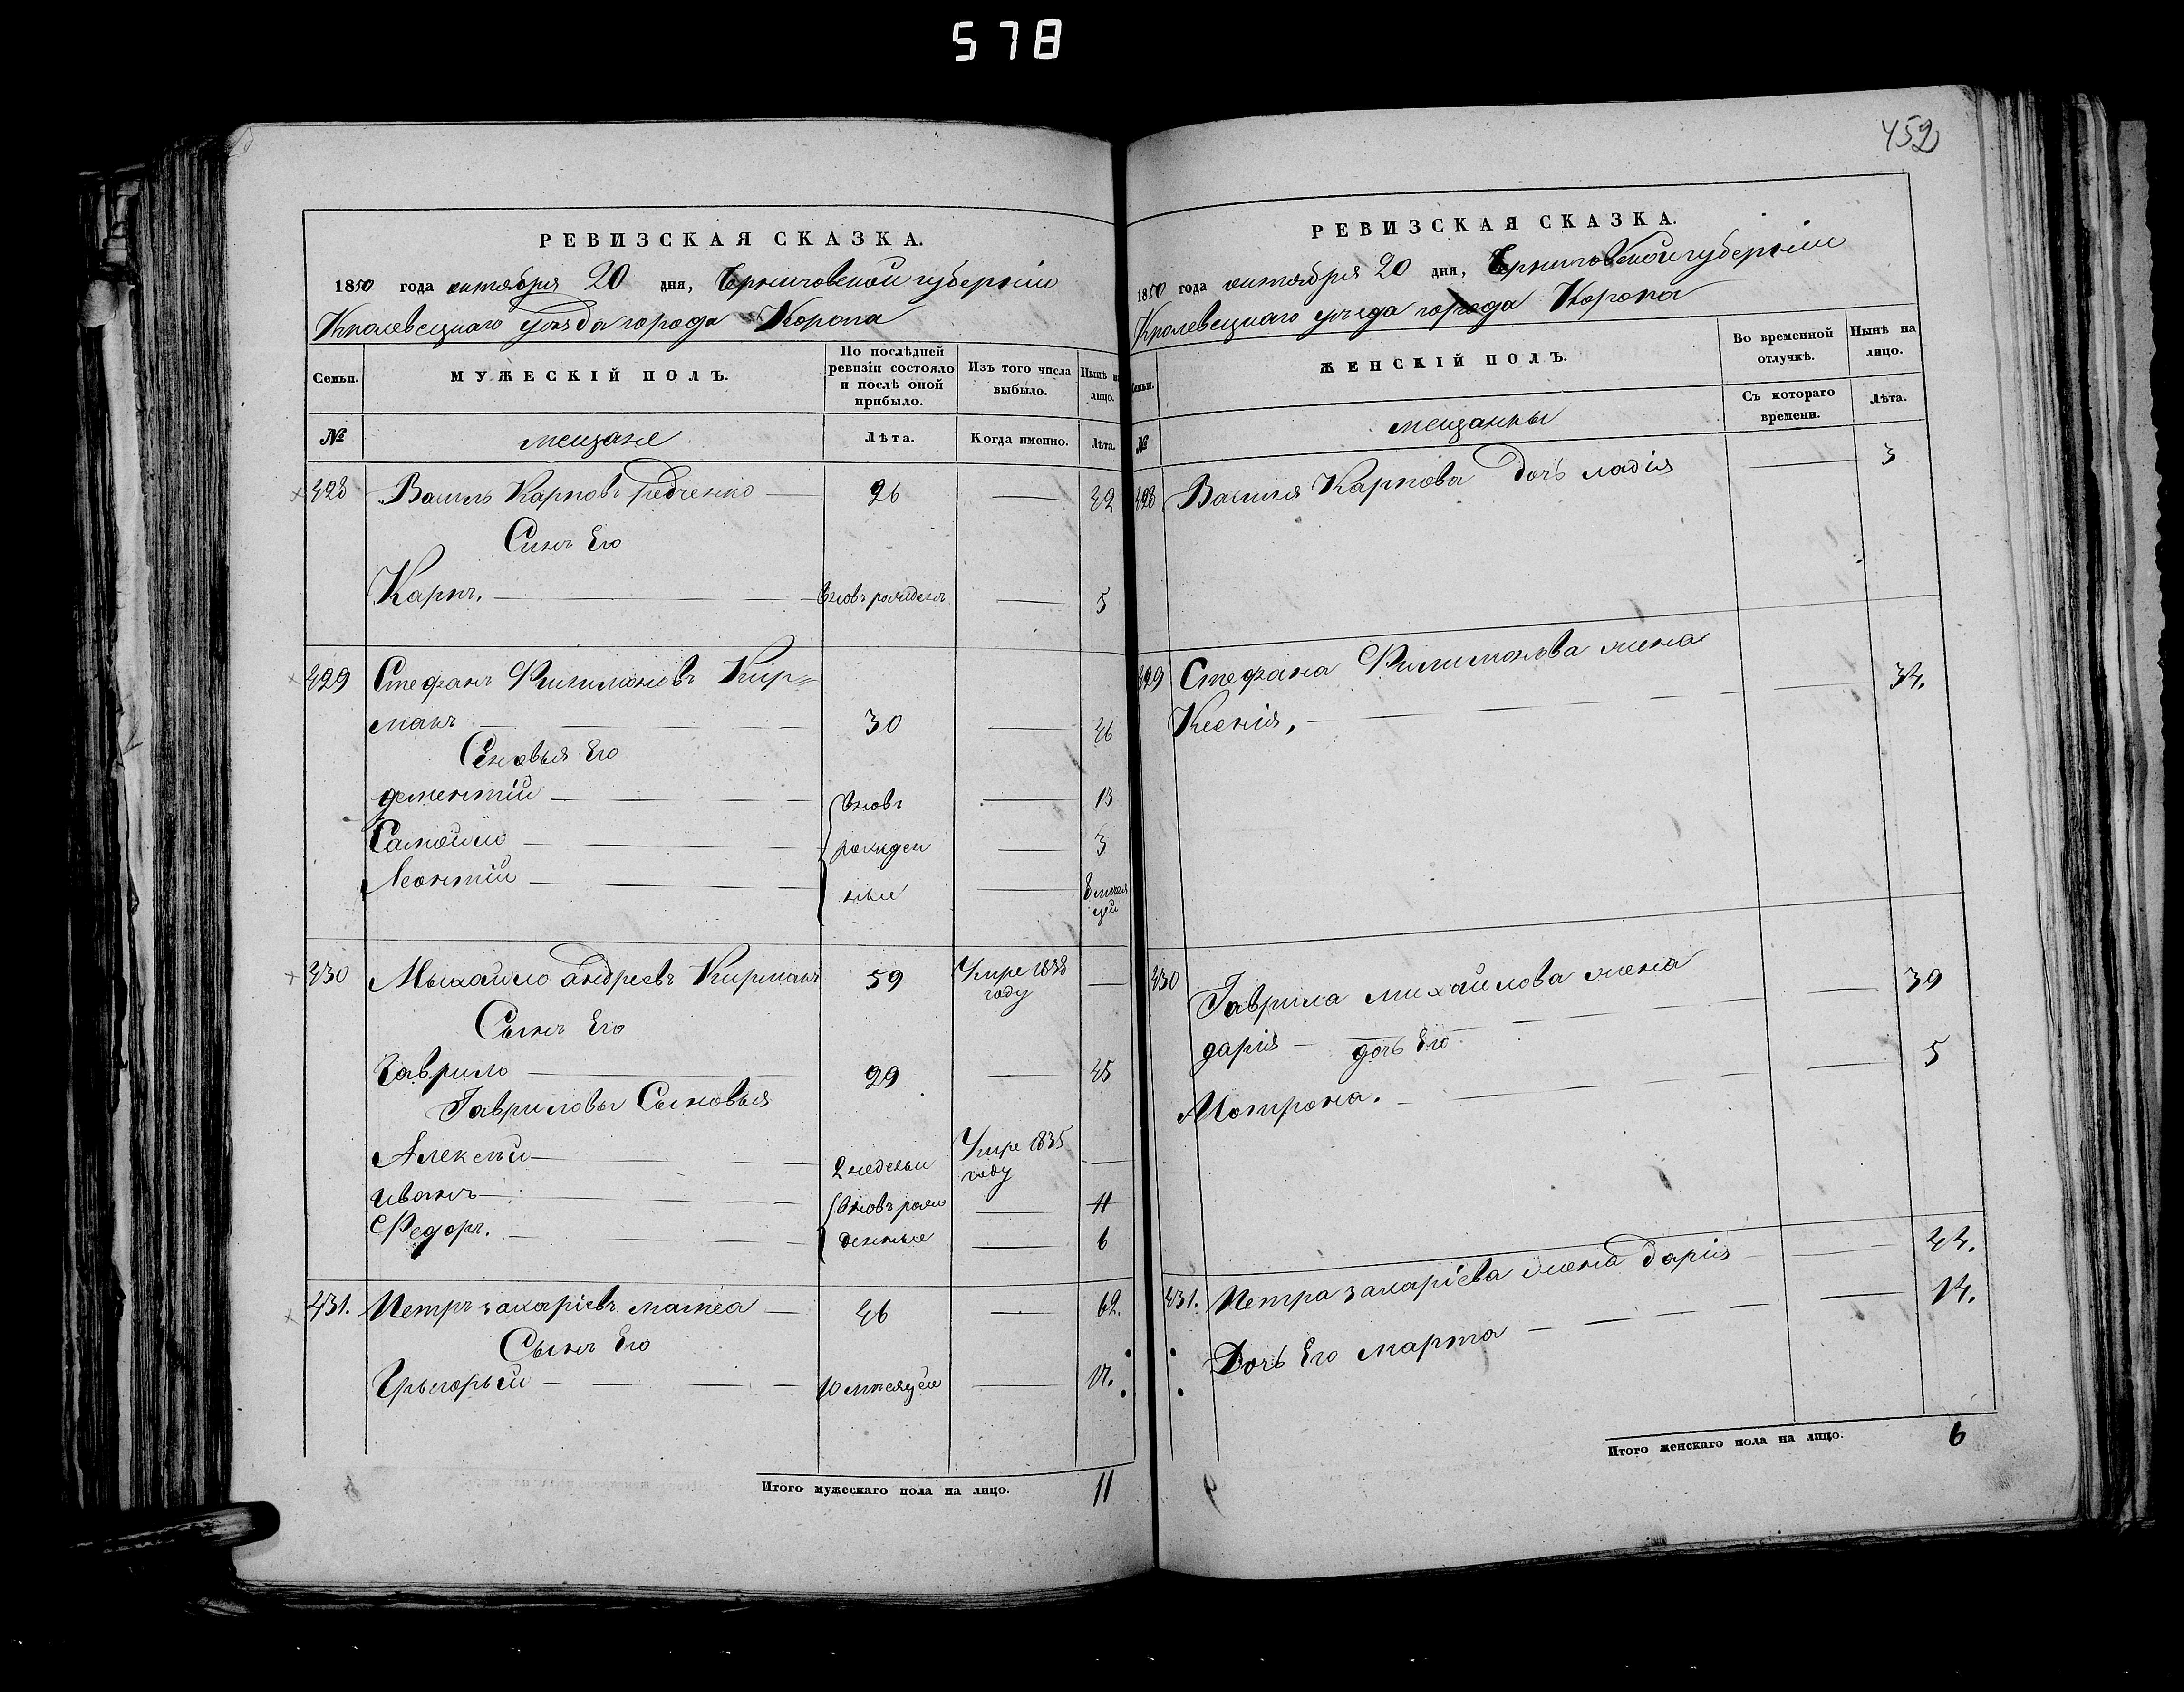 578
452
РЕВИЗСКАЯ СКАЗКА.
1850 года октября 20 дня, Черниговской губерніи
Кролевецкаго уезда города Коропа
Семьи. МУЖЕСКІЙ ПОЛЪ. По послѣдней ревизіи состояло и послѣ оной прибыло. Изъ того числа выбыло. Нынѣ на лицо.
№ мещане Лѣта. Когда именно. Лѣта.
428 Василь Карповъ Редченко — 26 — 42
Синъ Его
Карпъ. — вновь рожденъ — 5
429 Стефанъ Филимоновъ Кир=
манъ — 30 — 46
Сеновья Его
дементій — вновь — 13
Самойло — рожден — 3
Леонтій — ные — 8 месяцей
430 Мыхайло андреевъ Кирманъ 59 Умре 1838 году —
Сынъ Его
Гаврило — 29 — 45
Гавриловы Сыновья
Алексей — 2 недельи Умре 1835 году —
иванъ — вновь рож — 11
Федоръ. — денные — 6
431. Петръ захаріевъ матеа — 46 — 62.
Сынъ Его
Грыгорый — 10 месяцей — 17.
Итого мужескаго пола на лицо. 11
РЕВИЗСКАЯ СКАЗКА.
1850 года октября 20 дня, Черниговской губерніи
Кролевецкаго уезда города Коропа
Семьи. ЖЕНСКІЙ ПОЛЪ. Во временной отлучкѣ. Нынѣ на лицо.
№ мещанкы Съ котораго времени. Лѣта.
428 Василя Карпова дочь — 3
429 Стефана Филимонова жена
Ксенія, — 34.
430 Гаврила михайлова жена
дарія — 39
дочь Его
Мотрона. — 5
431. Петра захаріева жена дарія — 44.
Дочь Его марта — 14.
Итого женскаго пола на лицо. 6